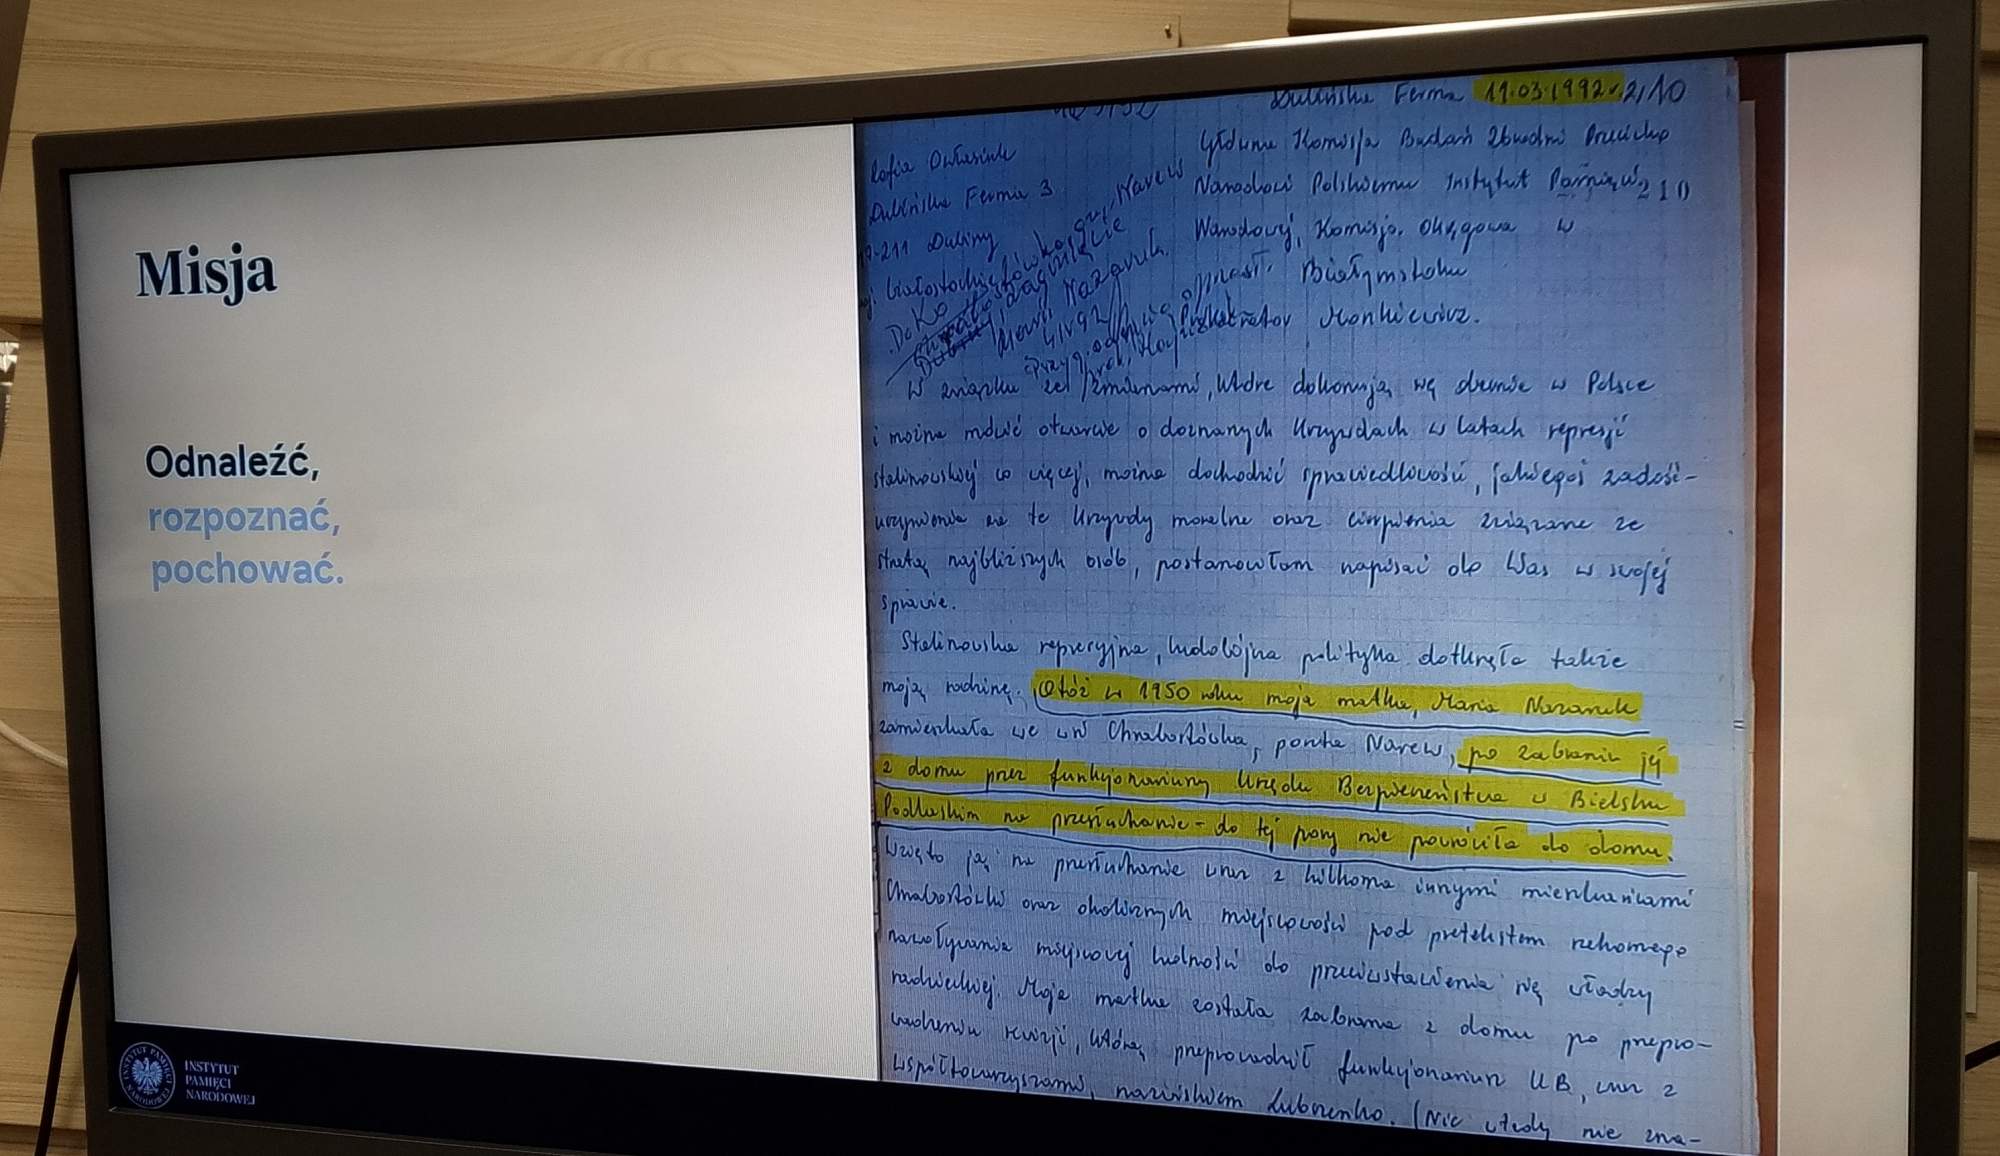 Misja
Odnaleźć,
rozpoznać,
pochować.
INSTYTUT
PAMIĘCI
NARODOWEJ
Dubińska Ferma 19.03.1992r. 2/10
Zofia
Dubińska Ferma 3
Dubiny
Główna Komisja Badań Zbrodni Przeciwko
Narodowi Polskiemu Instytut Pamięci 210
Narodowej, Komisja Okręgowa w
Białymstoku
Prokurator Monkiewicz.
Maria Nazaruk
W związku ze zmianami, które dokonują się obecnie w Polsce
i można mówić otwarcie o doznanych krzywdach w latach represji
stalinowskiej co więcej, można dochodzić sprawiedliwości, jakiegoś zadość-
uczynienia za te krzywdy moralne oraz cierpienia związane ze
stratą najbliższych osób, postanowiłam napisać do Was w swojej
sprawie.
Stalinowska represyjna, ludobójna polityka dotknęła także
moją rodzinę. Otóż w 1950 roku moja matka, Maria Nazaruk
zamieszkała we wsi Chrabostówka, poczta Narew, po zabraniu jej
z domu przez funkcjonariuszy Urzędu Bezpieczeństwa w Bielsku
Podlaskim na przesłuchanie - do tej pory nie powróciła do domu.
Wzięto ją na przesłuchanie wraz z kilkoma innymi mieszkańcami
Chrabostówki oraz okolicznych miejscowości pod pretekstem rzekomego
nawoływania miejscowej ludności do przeciwstawienia się władzy
radzieckiej. Moja matka została zabrana z domu po przepro-
wadzeniu rewizji, którą przeprowadził funkcjonariusz UB, wraz z
współtowarzyszami, nazwiskiem Łubczenko. (Nic wtedy nie zna-